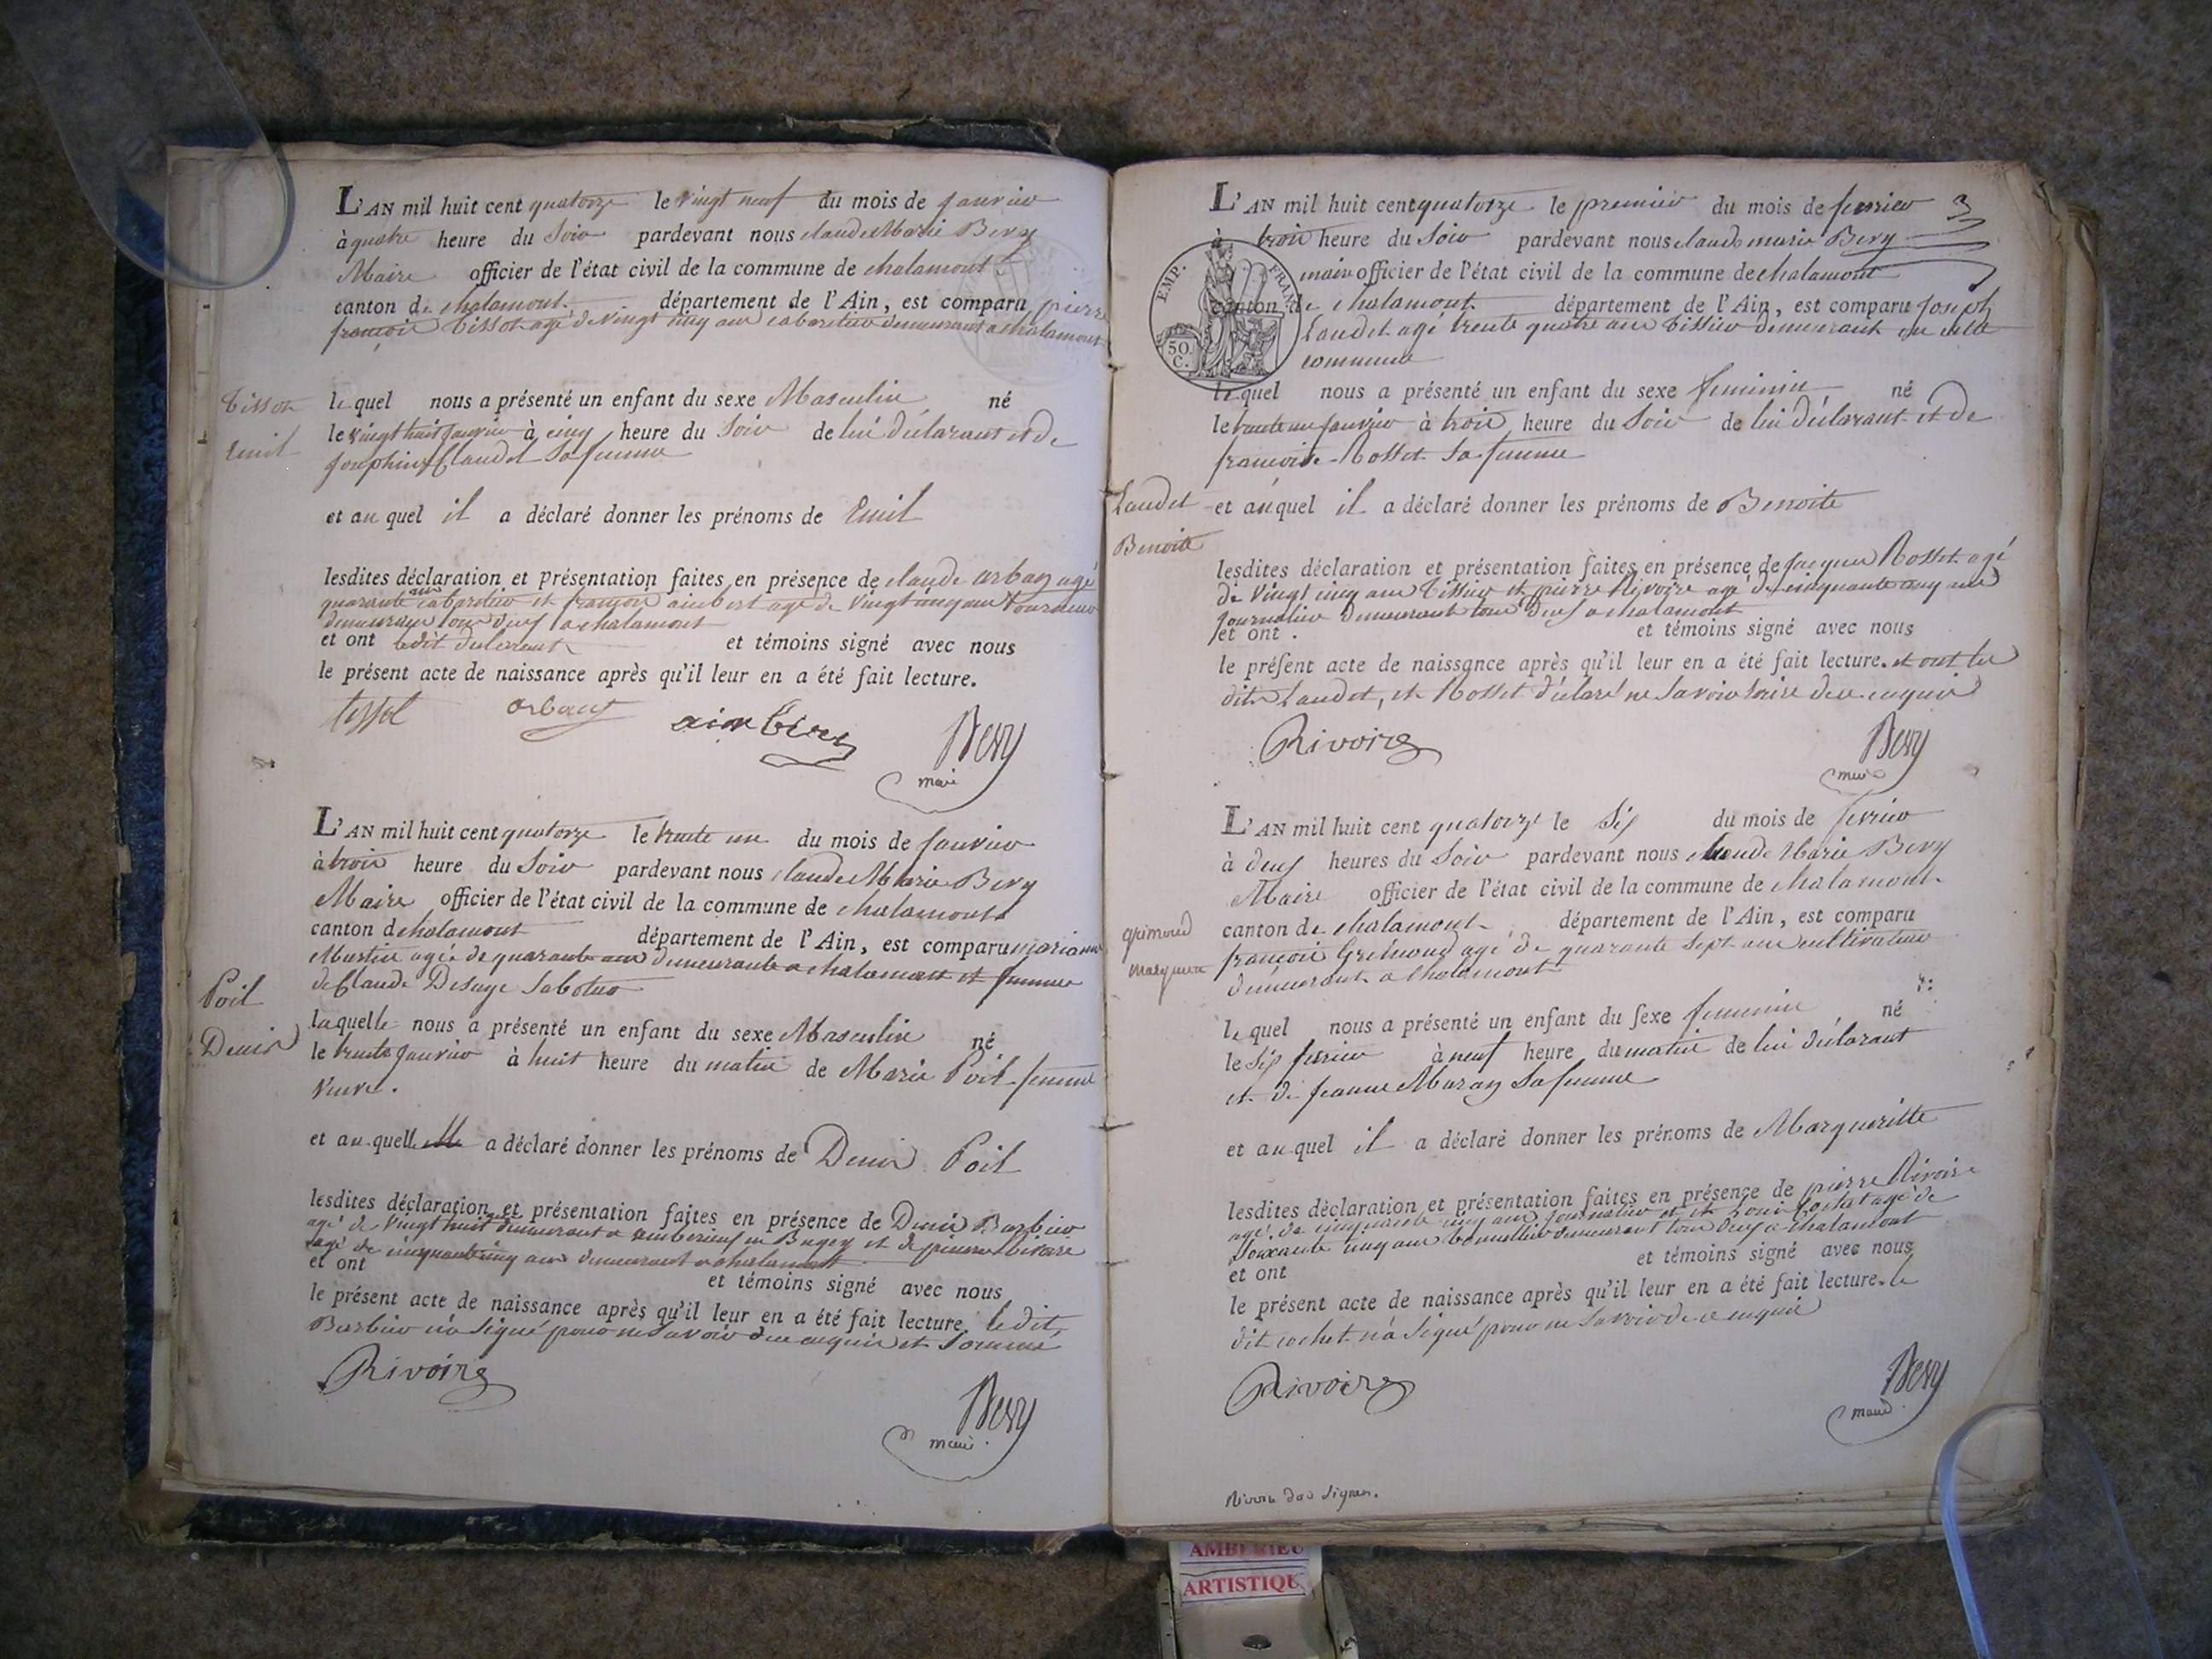 L'AN mil huit cent quatorze le vingt neuf du mois de janvier
à quatre heure du Soir pardevant nous claude Marie Bery
Maire officier de l'état civil de la commune de chalamont
canton de chalamont département de l'Ain, est comparu pierre
françois tissot agé de vingt cinq ans cabaretier demeurant a chalamont
Tissot
le quel nous a présenté un enfant du sexe Masculin né
Emil
le vingt huit janvier à cinq heure du Soir de lui déclarant et de
Josephine Claudel Sa femme
et au quel il a déclaré donner les prénoms de Emil
lesdites déclaration et présentation faites en présence de claude orban agé
quarante ans cabaretier et françois aimbert agé de vingt cinq ans tourneur
demeurant tous deux a chalamont
et ont ledit declarant et témoins signé avec nous
le présent acte de naissance après qu'il leur en a été fait lecture.
tissot orban aimbert Bery
maire
L'AN mil huit cent quatorze le trente une du mois de janvier
à trois heure du Soir pardevant nous claude Marie Bery
Maire officier de l'état civil de la commune de chalamont
canton de chalamont département de l'Ain, est comparu marianne
Martin agée de quarante ans demeurante a chalamont et femme
de Claude Desuge Sabotier
Poil
laquelle nous a présenté un enfant du sexe Masculin né
Denis
le trente janvier à huit heure du matin de Marie Poil femme
veuve.
et au quel elle a déclaré donner les prénoms de Denis Poil
lesdites déclaration et présentation faites en présence de Denis Barbier
agé de vingt huit demeurant a amberieux en Bugey et de pierre Rivoire
agé de cinquante cinq ans demeurant a chalamont
et ont et témoins signé avec nous
le présent acte de naissance après qu'il leur en a été fait lecture. ledit
Barbier n'a Signé pour ne Savoir de ce enquis et Sommé
Rivoire Bery
maire
L'AN mil huit cent quatorze le premier du mois de fevrier 3
à trois heure du Soir pardevant nous claude marie Bery
maire officier de l'état civil de la commune de chalamont
canton de chalamont département de l'Ain, est comparu joseph
Laudet agé trente quatre ans tissier demeurant en cette
commune
EMP. FRANÇ
50. C.
le quel nous a présenté un enfant du sexe feminin né
le trente un janvier à trois heure du Soir de lui déclarant et de
françoise Rosset Sa femme
Laudet
et au quel il a déclaré donner les prénoms de Benoite
Benoite
lesdites déclaration et présentation faites en présence de jacques Rosset agé
de vingt cinq ans tissier et pierre Rivoire agé de cinquante cinq ans
journalier demeurant tous deux a chalamont
et ont . et témoins signé avec nous
le présent acte de naissance après qu'il leur en a été fait lecture. et ont les
dits Laudet, et Rosset déclaré ne Savoir écrire de ce enquis
Rivoire Bery
maire
L'AN mil huit cent quatorze le Six du mois de fevrier
à deux heures du Soir pardevant nous claude Marie Bery
Maire officier de l'état civil de la commune de chalamont
grimoud
canton de chalamont département de l'Ain, est comparu
françois Grimoud agé de quarante sept ans cultivateur
marguerite
demeurant a chalamont
le quel nous a présenté un enfant du sexe feminin né
le Six fevrier à neuf heure du matin de lui déclarant
et de jeanne Maray Sa femme
et au quel il a déclaré donner les prénoms de Margueritte
lesdites déclaration et présentation faites en présence de pierre Rivoire
agé de cinquante cinq ans journalier et Louis Cochet agé de
Soixante cinq ans demeurant tous deux a chalamont
et ont et témoins signé avec nous
le présent acte de naissance après qu'il leur en a été fait lecture. le
dit cochet n'a Signé pour ne Savoir de ce enquis
Rivoire Bery
maire
AMBERIEU
ARTISTIQU